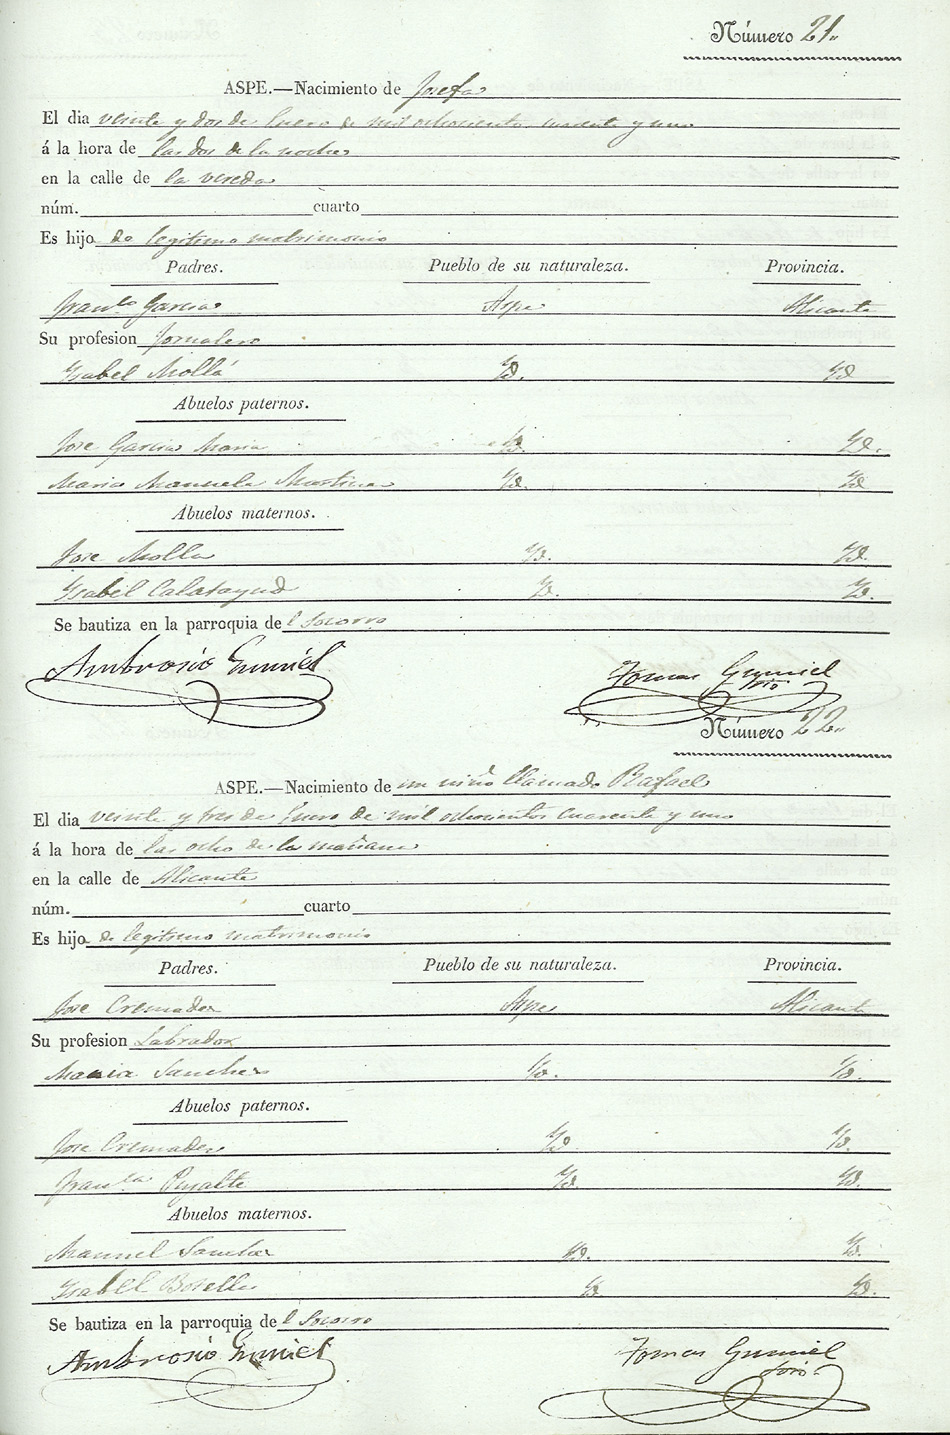 Número 21.
ASPE.—Nacimiento de Josefa
El dia veinte y dos de Enero de mil ochocientos cuarenta y uno
á la hora de las dos de la noche
en la calle de la vereda
núm. cuarto
Es hijo de legitimo matrimonio
Padres. Pueblo de su naturaleza. Provincia.
Franco Garcia Aspe Alicante
Su profesion Jornalero
Ysabel Mollá Yd. Yd
Abuelos paternos.
Jose Garcia Maria Yd. Yd.
Maria Manuela Martinez Yd. Yd
Abuelos maternos.
Jose Molla Yd. Yd.
Ysabel Calatayud Yd. Yd.
Se bautiza en la parroquia del Socorro
Ambrosio Gumiel Tomas Gumiel
Srio
Número 22.
ASPE.—Nacimiento de un niño llamado Rafael
El dia veinte y tres de Enero de mil ochocientos cuarenta y uno
á la hora de las ocho de la mañana
en la calle de Alicante
núm. cuarto
Es hijo de legitimo matrimonio
Padres. Pueblo de su naturaleza. Provincia.
Jose Cremades Aspe Alicante
Su profesion Labrador
Maria Sanchez Yd. Yd.
Abuelos paternos.
Jose Cremades Yd Yd.
Franca Pujalte Yd. Yd.
Abuelos maternos.
Manuel Sanchez Yd. Yd.
Ysabel Botella Yd Yd.
Se bautiza en la parroquia del Socorro
Ambrosio Gumiel Tomas Gumiel
Srio